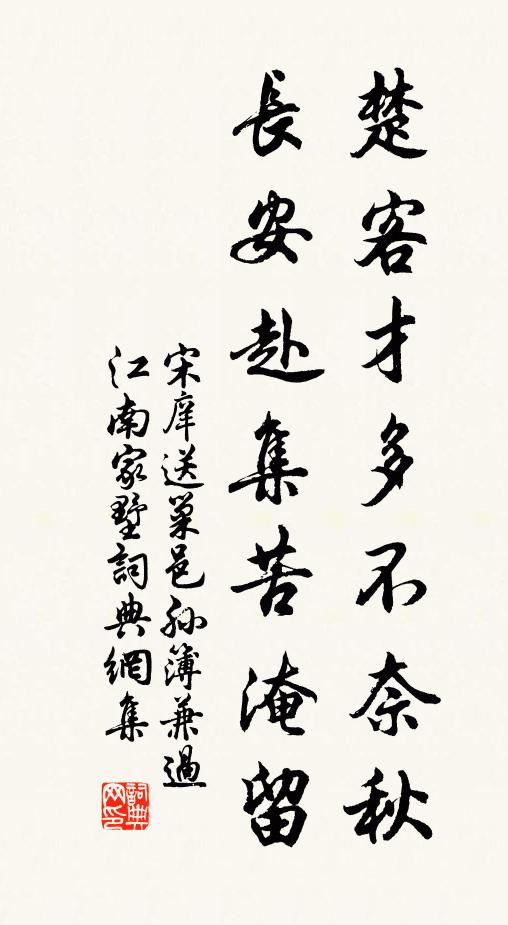 楚客才多不奈秋
長安赴集苦淹留
宋庠送巢邑孙簿兼過
江南家墅詞典網集
詞典网印